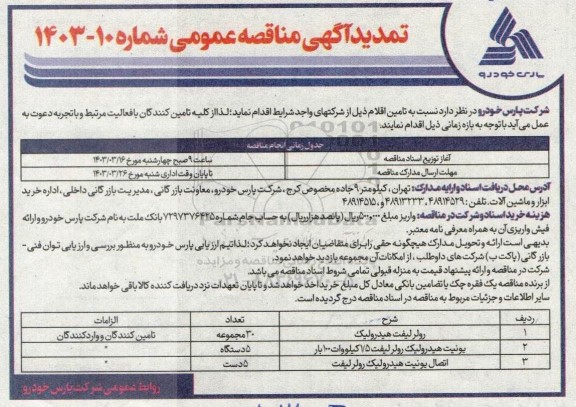 تمدید آگهی مناقصه عمومی شماره ۱۰-۱۴۰۳
پارس خودرو
شرکت پارس خودرو در نظر دارد نسبت به تامین اقلام ذیل از شرکتهای واجد شرایط اقدام نماید؛ لذا از کلیه تامین کنندگان با فعالیت مرتبط و با تجربه دعوت به
عمل می آید با توجه به بازه زمانی ذیل اقدام نمایند:
جدول زمانی انجام مناقصه
آغاز توزیع اسناد مناقصه ساعت ۹ صبح چهارشنبه مورخ ۱۴۰۳/۰۳/۱۶
مهلت ارسال مدارک مناقصه تا پایان وقت اداری شنبه مورخ ۱۴۰۳/۰۳/۲۶
آدرس محل دریافت اسناد و ارایه مدارک: تهران، کیلومتر ۹ جاده مخصوص کرج، شرکت پارس خودرو، معاونت بازرگانی، مدیریت بازرگانی داخلی، اداره خرید
ابزار و ماشین آلات. تلفن: ۴۸۹۱۴۵۲۹، ۴۸۹۱۳۲۳۳ و ۴۸۹۱۴۵۱۵
هزینه خرید اسناد و شرکت در مناقصه: واریز مبلغ ۵۰۰,۰۰۰ ریال (پانصد هزار ریال) به حساب جام شماره ۷۲۹۷۳۷۶۴۲۵ بانک ملت به نام شرکت پارس خودرو و ارائه
فیش واریزی آن به همراه معرفی نامه معتبر.
بدیهی است ارائه و تحویل مدارک هیچگونه حقی را برای متقاضیان ایجاد نخواهد کرد؛ لذا تیم ارزیابی پارس خودرو به منظور بررسی و ارزیابی توان فنی-
بازرگانی (پاکت ب) شرکت های داوطلب، از امکانات آن مجموعه بازدید خواهد نمود.
شرکت در مناقصه و ارائه پیشنهاد قیمت به منزله قبولی تمامی شروط اسناد مناقصه می باشد.
از برنده مناقصه یک فقره چک یا تضامین بانکی معادل کل مبلغ خرید اخذ خواهد شد و تا پایان تعهدات نزد دریافت کننده کالا باقی خواهد ماند.
سایر اطلاعات و جزئیات مربوط به مناقصه در اسناد مناقصه درج گردیده است.
ردیف شرح تعداد الزامات
۱ رولر لیفت هیدرولیک ۳۰ مجموعه تامین کنندگان و واردکنندگان
۲ یونیت هیدرولیک رولر لیفت ۷/۵ کیلووات ۱۰۰ بار ۵ دستگاه "
۳ اتصال یونیت هیدرولیک رولر لیفت ۵ دست "
روابط عمومی شرکت پارس خودرو